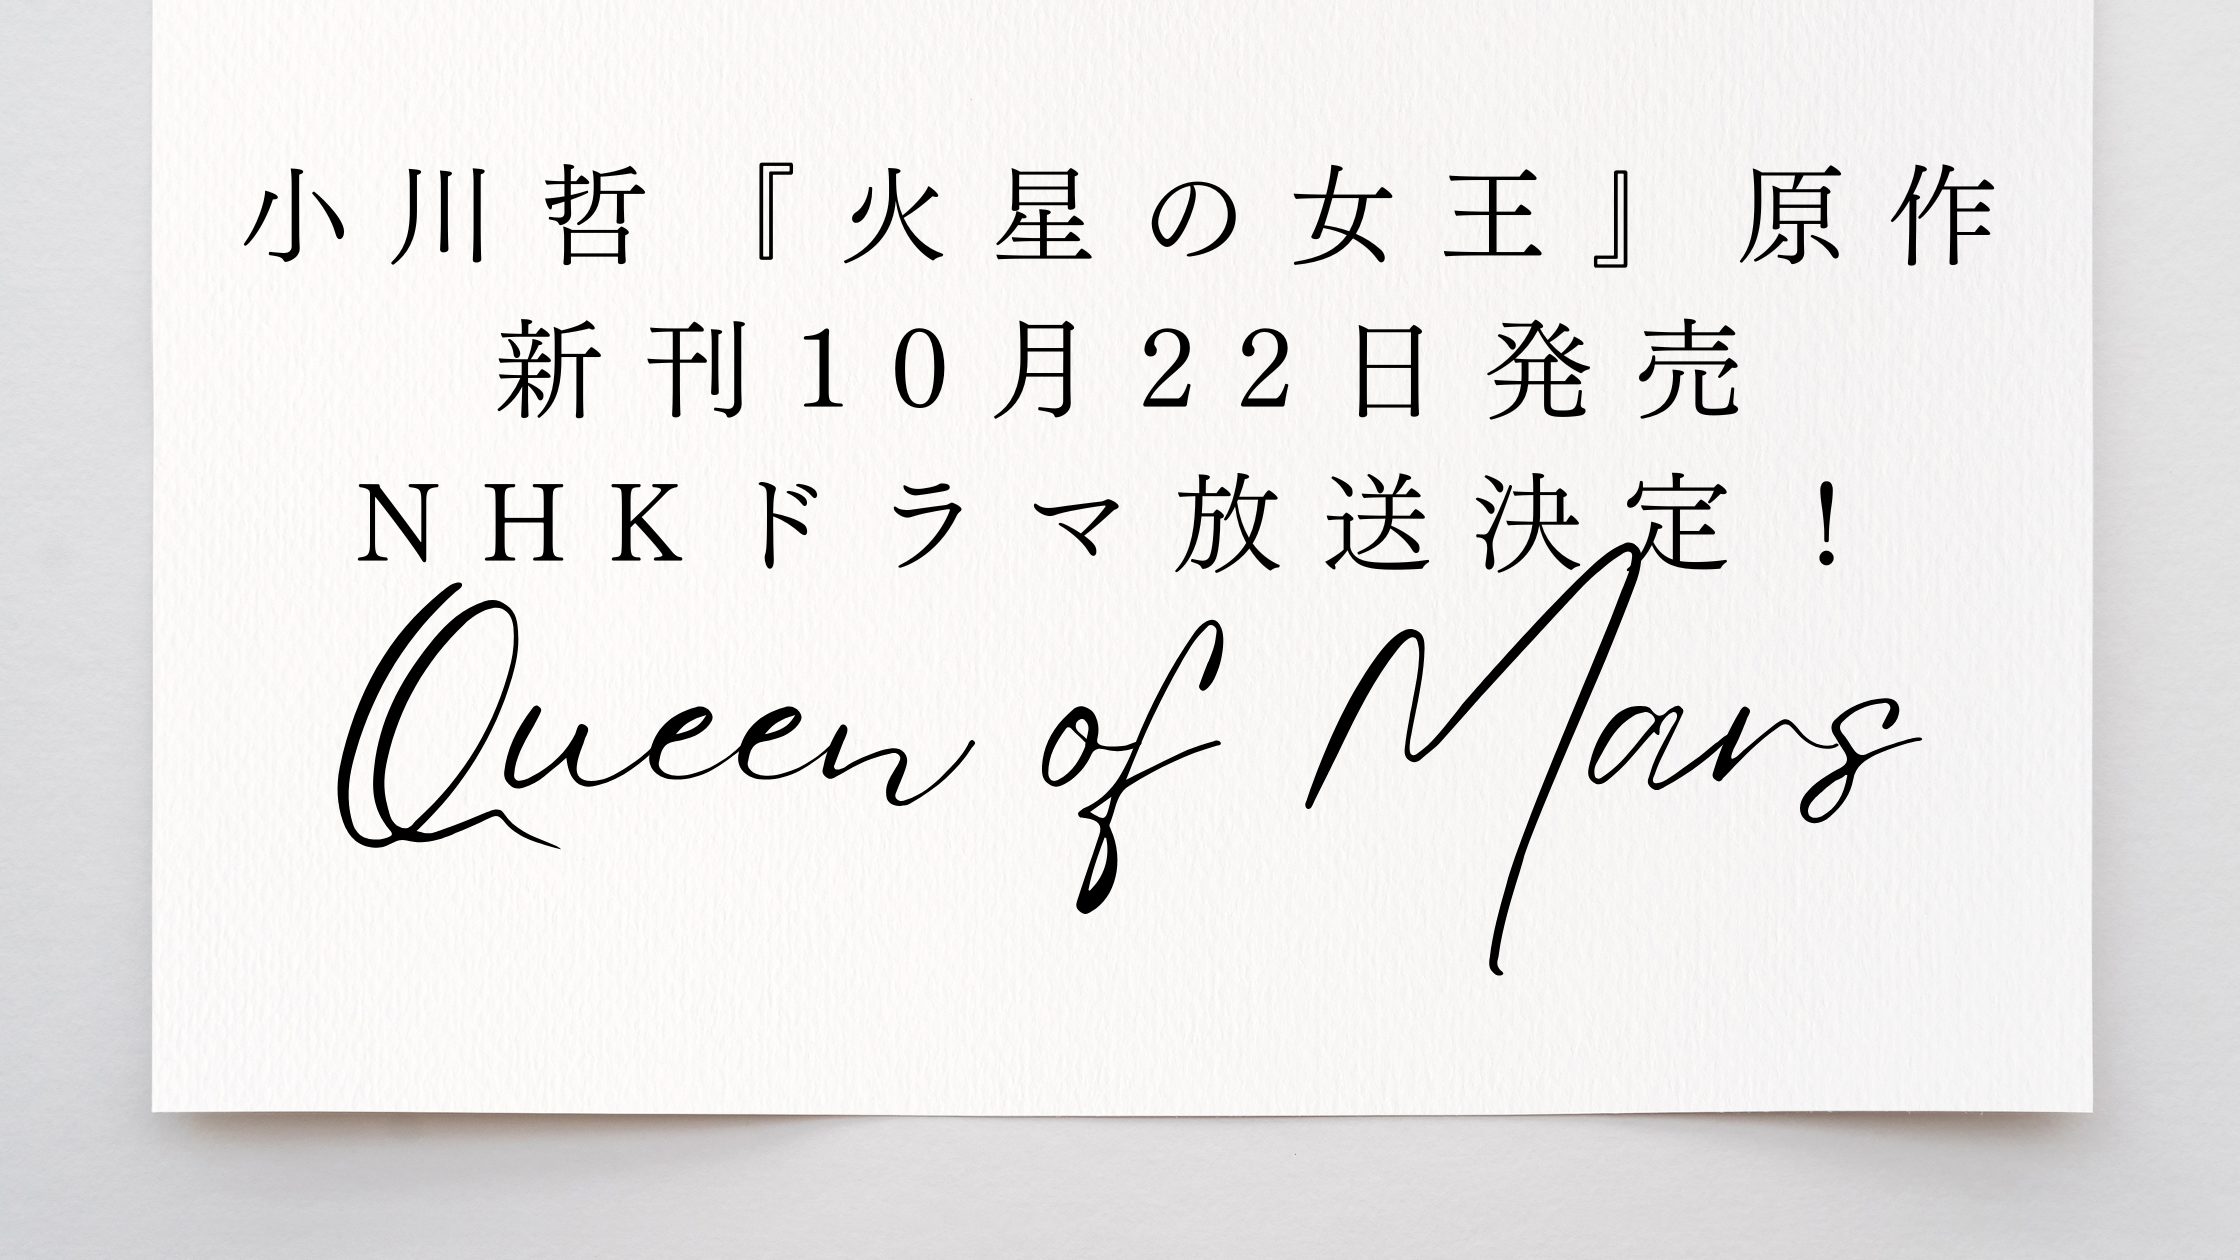 小川哲『火星の女王』原作
新刊10月22日発売
NHKドラマ放送決定！
Queen of Mars